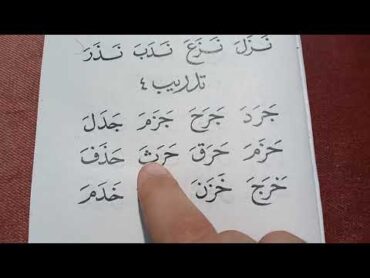 نَزَلَ نَزَعَ نَدَبَ نَذَرَ
تدريب ٤
جَرَدَ جَرَحَ جَزَمَ جَدَلَ
حَزَمَ حَرَقَ حَرَثَ حَذَفَ
خَرَجَ خَزَنَ خَدَمَ